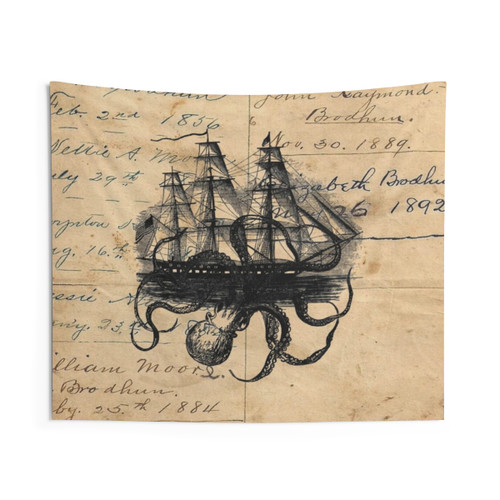 Feb. 2nd 1856
Nettie S. Moo
uly 29th
g. 16th
essie
23rd
lliam Moore.
Brodhun.
by. 25th 1884
John Raymond.
Brodhun.
Nov. 30. 1889.
izabeth Brodhu
26 1892